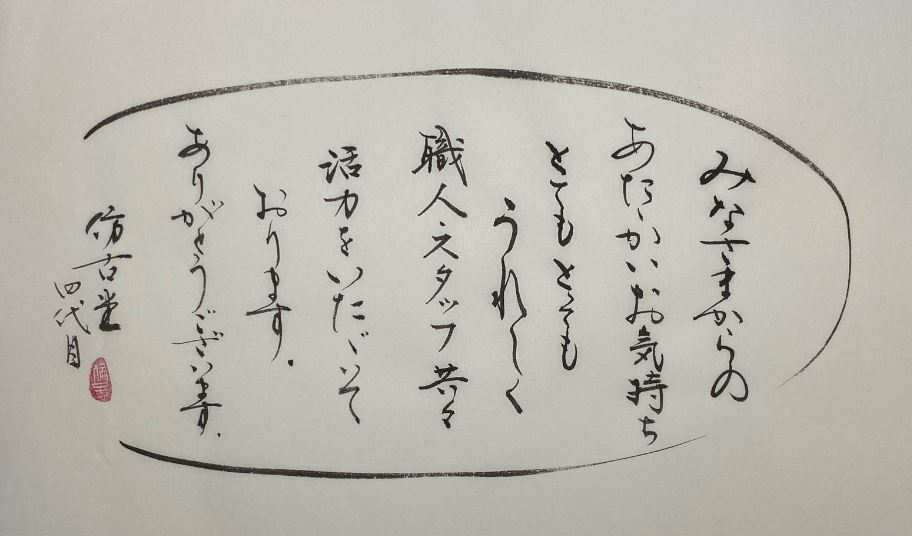 みなさまからの
あたゝかいお気持ち
とてもとても
うれしく
職人・スタッフ共々
活力をいたゞいて
おります。
ありがとうございます。
仿古堂
四代目